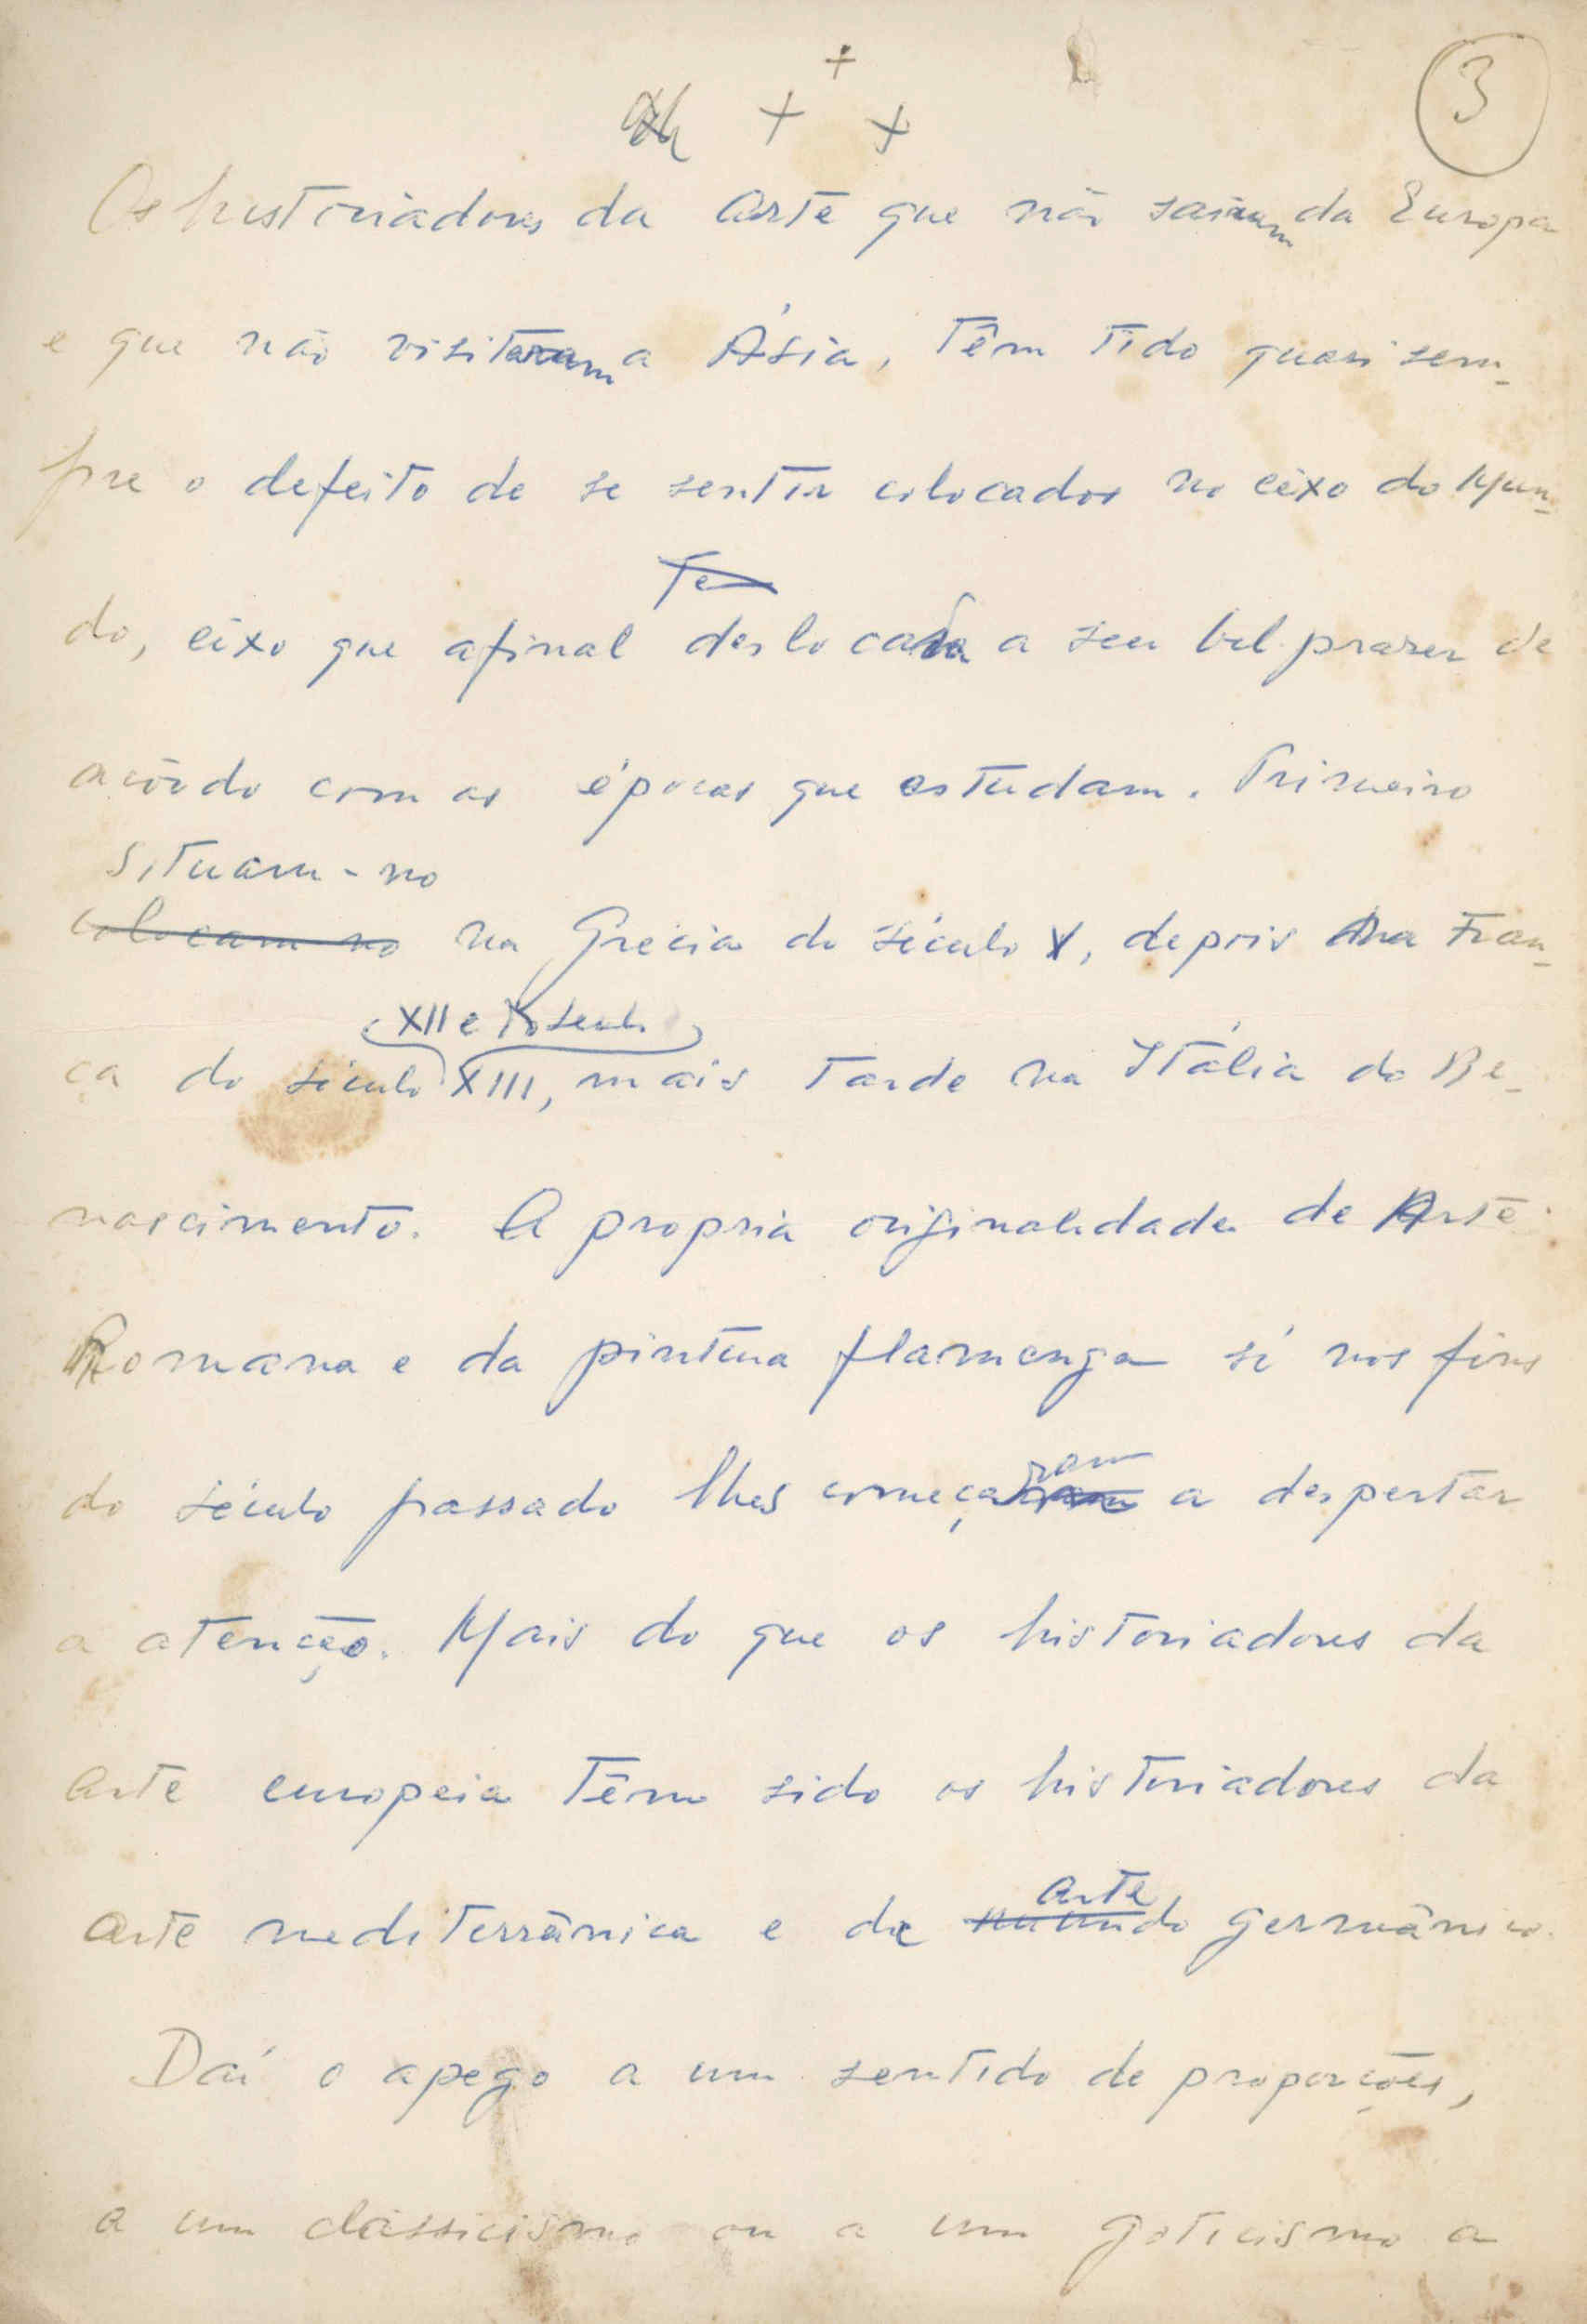 3
Os historiadores da Arte que não sairam da Europa
e que não visitaram a Ásia, têm tido quasi sem-
pre o defeito de se sentir colocados no eixo do Mun-
do, eixo que afinal a seu bel prazer de
acôrdo com as épocas que estudam. Primeiro
situam-no
colocam no na Grécia do século V, depois na Fran-
XII e do seculo
ça do século XIII, mais tarde na Itália do Re-
nascimento. A propria originalidade de Arte
Romana e da pintura flamenga só nos fins
ram
do século passado lhes começa a despertar
a atenção. Mais do que os historiadores da
Arte europeia têm sido os historiadores da
arte
Arte mediterrânica e de mundo germânico.
Daí o apego a um sentido de proporções,
a um classicismo ou a um goticismo a